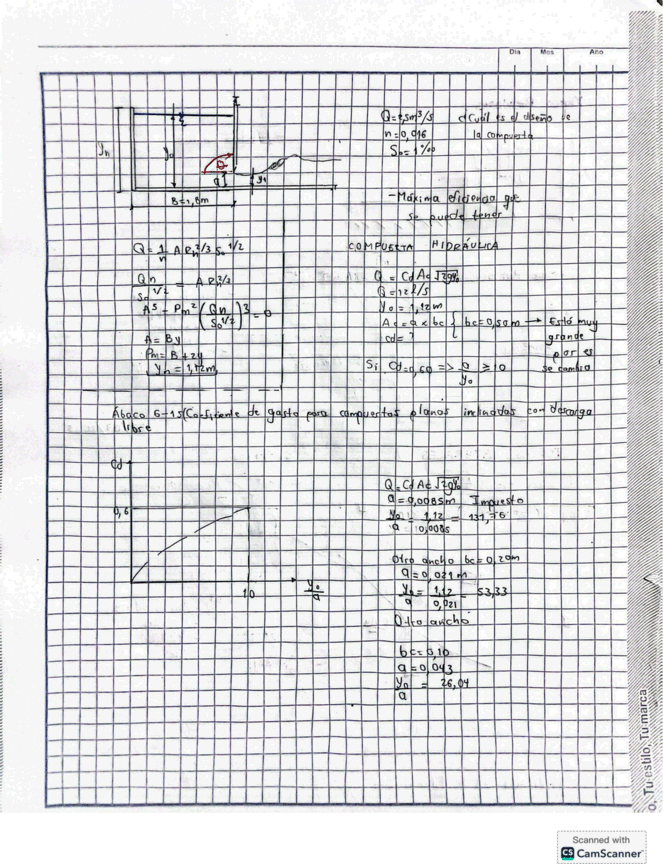 Día Mes Año
Q=2,5m³/s ¿Cuál es el diseño de
n=0,016 la compuerta
S₀=1‰
yn y₀ a y₁
B=1,8m
-Máxima eficiencia que
se puede tener
COMPUERTA HIDRÁULICA
Q=1/n A Rh^2/3 S₀^1/2
Qn/S₀^1/2 = A Rh^2/3
A⁵ - Pm² (Qn/S₀^1/2)³=0
A= By
Pm= B+2y
yn=1,12m
Q = Cd Ac √2gy₀
Q=12 l/s
y₀ = 1,12m
Ac = a × bc { bc=0,50m → Está muy
cd= ? grande
por es
se cambia
Si Cd=0,60 => a/y₀ ≥ 10
Ábaco 6-15(Coeficiente de gasto para compuertas planas inclinadas con descarga
libre
Cd
0,6
10 y₀/a
Q=Cd Ac √2gy₀
a=0,0085m Impuesto
y₀/a = 1,12/0,0085 = 131,76
Otro ancho bc=0,20m
a=0,021m
y₀/a = 1,12/0,021 = 53,33
Otro ancho
bc=0,10
a=0,043
y₀/a = 26,04
o, Tu estilo, Tu marca
Scanned with
CS CamScanner